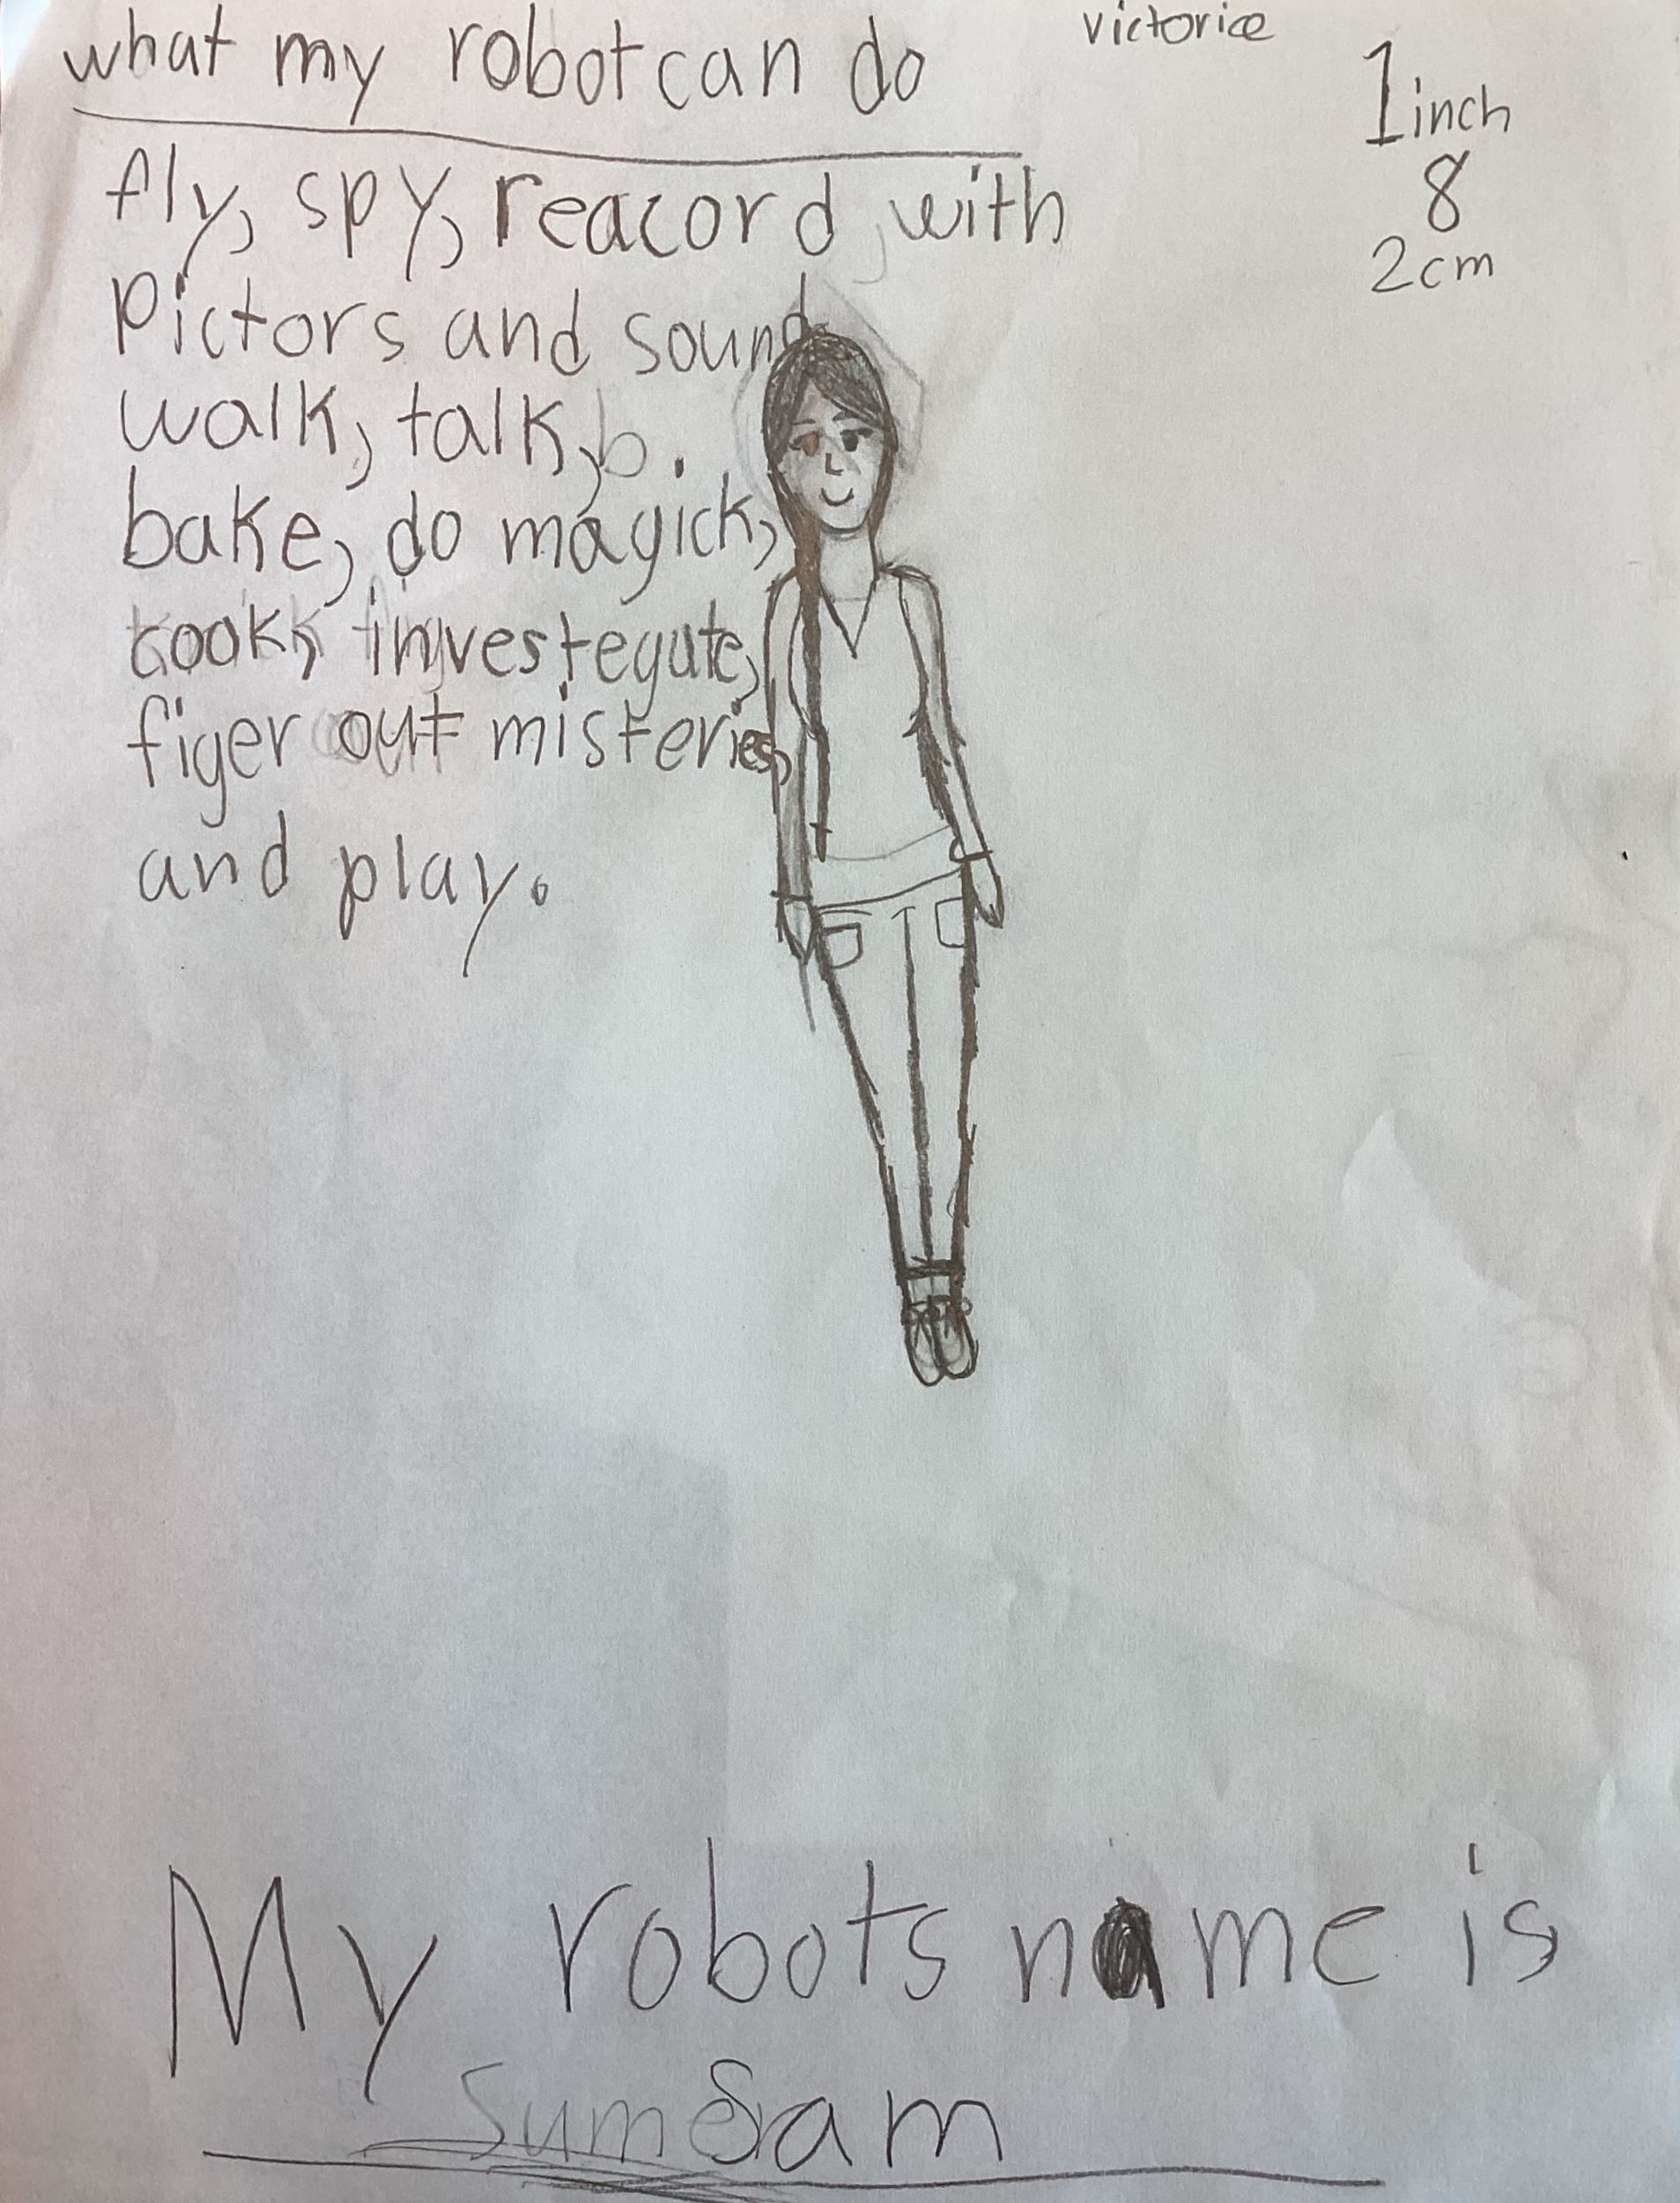 what my robot can do
victoria
1 inch
8
2cm
fly, spy, reacord, with
Pictors and sound
walk, talk, b.
bake, do magick,
cook, investegate,
figer out misteries,
and play.
My robots name is
Sumer Sam